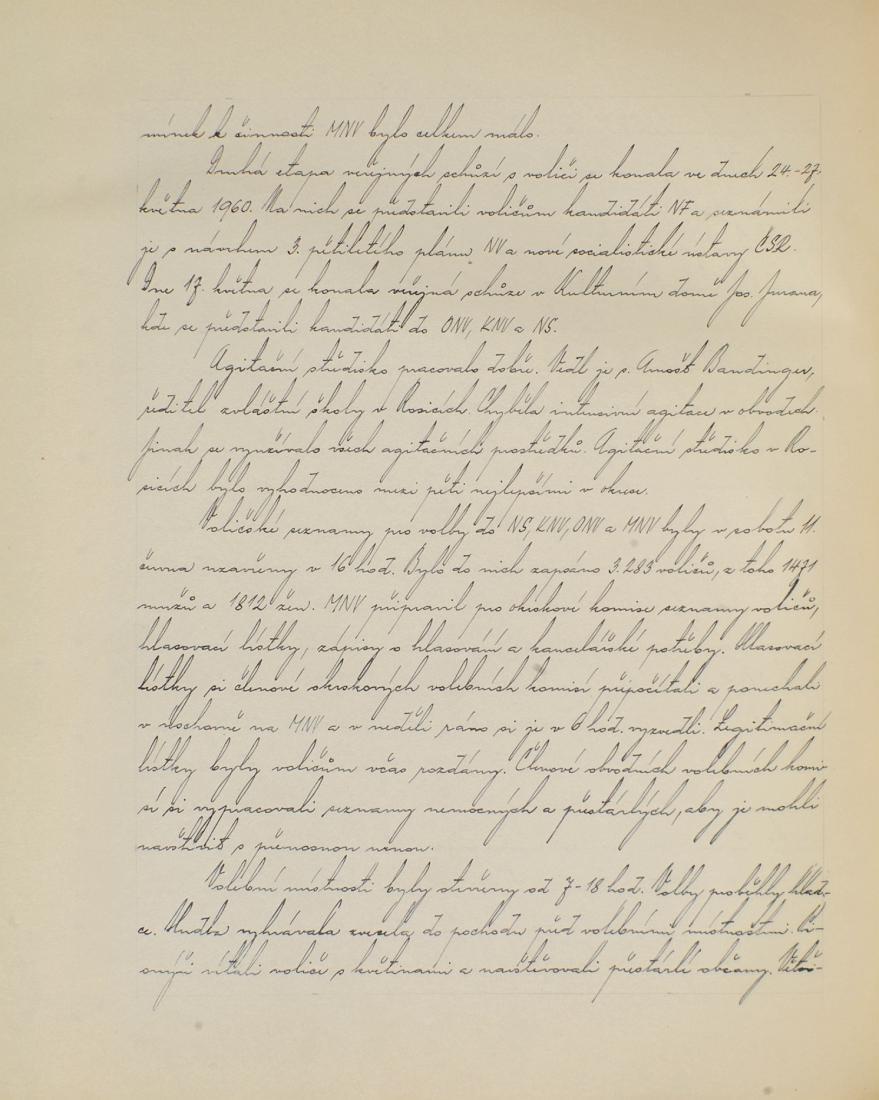 mínek k činnosti MNV bylo celkem málo.
Druhá etapa veřejných schůzí s voliči se konala ve dnech 24.-27.
května 1960. Na nich se představili voličům kandidáti NF a seznámili
je s návrhem 3. pětiletého plánu NV a nové socialistické ústavy ČSR.
Dne 17. května se konala veřejná schůze v Kulturním domě Jos. Jurana,
kde se představili kandidáti do ONV, KNV a NS.
Agitační středisko pracovalo dobře. Vedl je s. Arnošt Bandinger,
ředitel zvláštní školy v Rosicích. Chyběla intensivní agitace v obvodech.
Jinak se využívalo všech agitačních prostředků. Agitační středisko v Ro-
sicích bylo vyhodnoceno mezi pěti nejlepšími v okrese.
Voličské seznamy pro volby do NS, KNV, ONV a MNV byly v sobotu 11.
června uzavřeny v 16 hod. Bylo do nich zapsáno 3.283 voličů, z toho 1471
mužů a 1812 žen. MNV připravil pro okrskové komise seznamy voličů,
hlasovací lístky, zápisy o hlasování a kancelářské potřeby. Hlasovací
lístky si členové okrskových volebních komisí připočítali a ponechali
v úschově na MNV a v neděli ráno si je v 6 hod. vyzvedli. Legitimační
lístky byly voličům včas rozdány. Členové obvodních volebních komi-
sí si vypracovali seznamy nemocných a přestárlých, aby je mohli
navštívit s přenosnou urnou.
Volební místnosti byly otevřeny od 7-18 hod. Volby proběhly hlad-
ce. Hudba vyhrávala zvesela do pochodu před volebními místnostmi. Pi-
onýři vítali voliče s květinami a navštěvovali přestárlé občany. Větši-